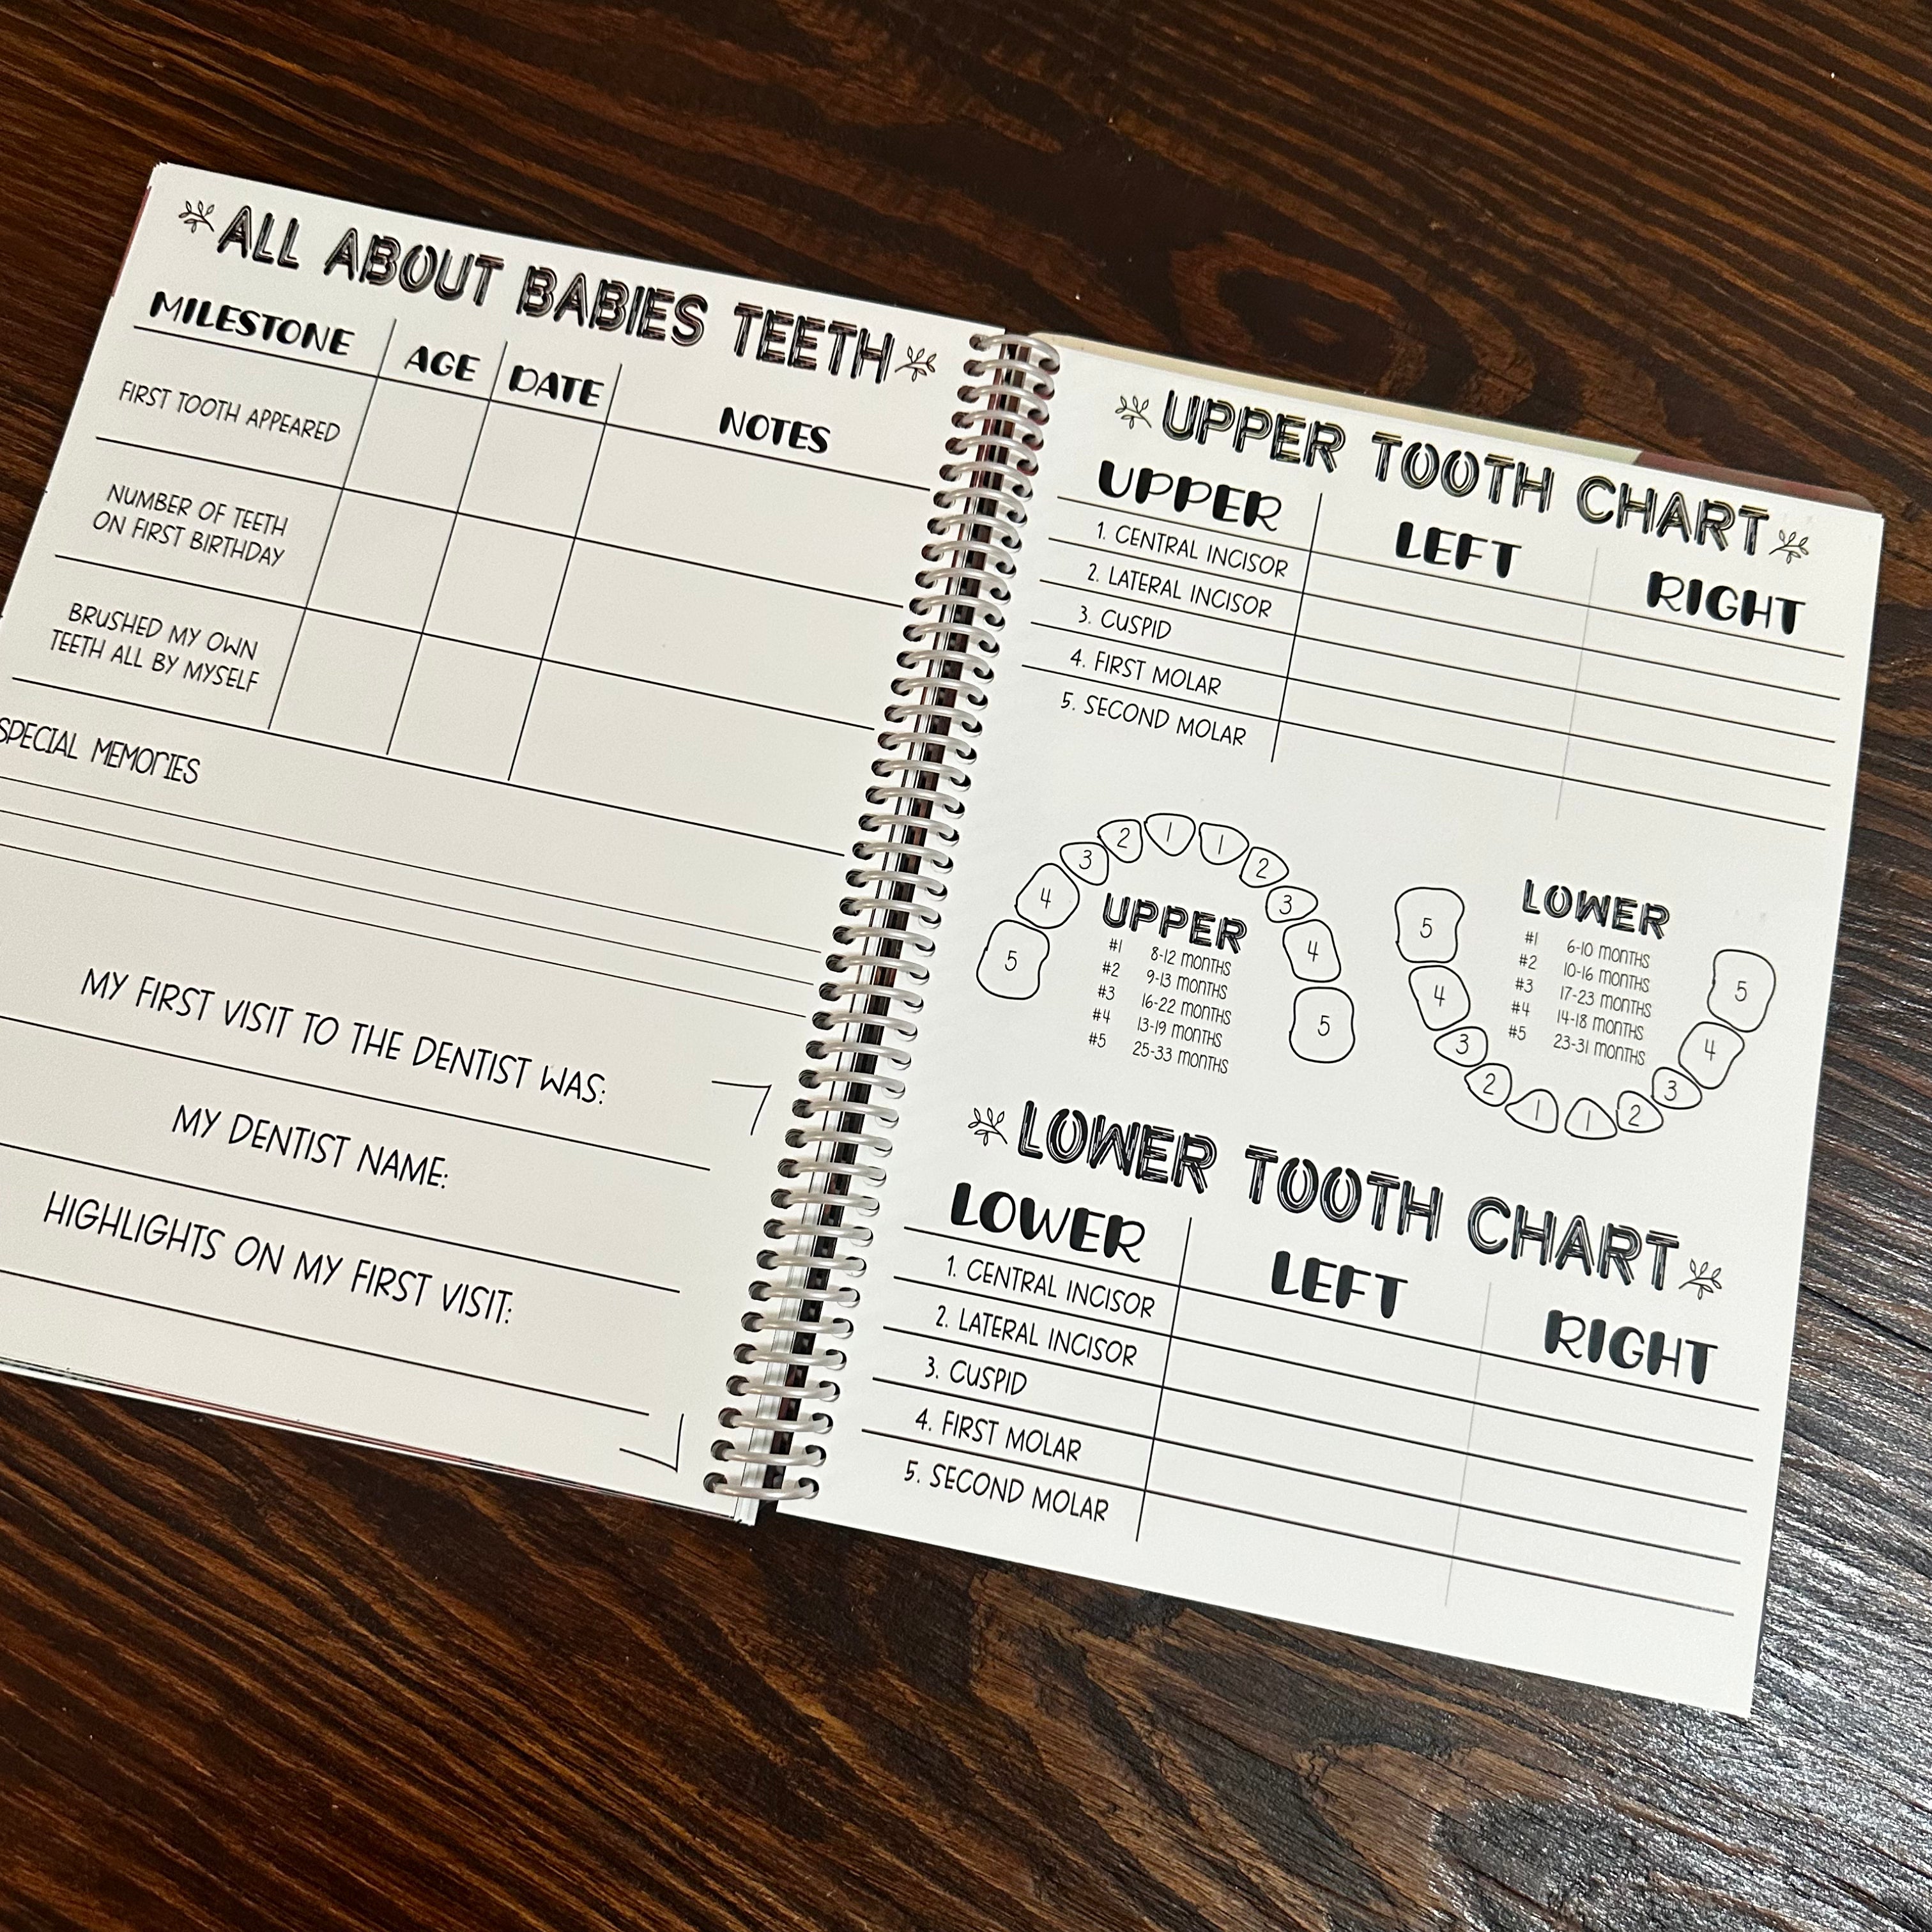 ALL ABOUT BABIES TEETH
MILESTONE AGE DATE NOTES
FIRST TOOTH APPEARED
NUMBER OF TEETH
ON FIRST BIRTHDAY
BRUSHED MY OWN
TEETH ALL BY MYSELF
SPECIAL MEMORIES
MY FIRST VISIT TO THE DENTIST WAS:
MY DENTIST NAME:
HIGHLIGHTS ON MY FIRST VISIT:
UPPER TOOTH CHART
UPPER LEFT RIGHT
1. CENTRAL INCISOR
2. LATERAL INCISOR
3. CUSPID
4. FIRST MOLAR
5. SECOND MOLAR
5 4 3 2 1 1 2 3 4 5
UPPER
#1 8-12 MONTHS
#2 9-13 MONTHS
#3 16-22 MONTHS
#4 13-19 MONTHS
#5 25-33 MONTHS
5 4 3 2 1 1 2 3 4 5
LOWER
#1 6-10 MONTHS
#2 10-16 MONTHS
#3 17-23 MONTHS
#4 14-18 MONTHS
#5 23-31 MONTHS
LOWER TOOTH CHART
LOWER LEFT RIGHT
1. CENTRAL INCISOR
2. LATERAL INCISOR
3. CUSPID
4. FIRST MOLAR
5. SECOND MOLAR